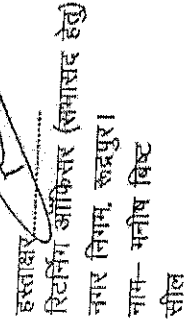 हस्ताक्षर..............
रिटर्निंग ऑफिसर (सभासद हेतु)
नगर निगम, रूद्रपुर।
नाम– मनीष बिष्ट
सील